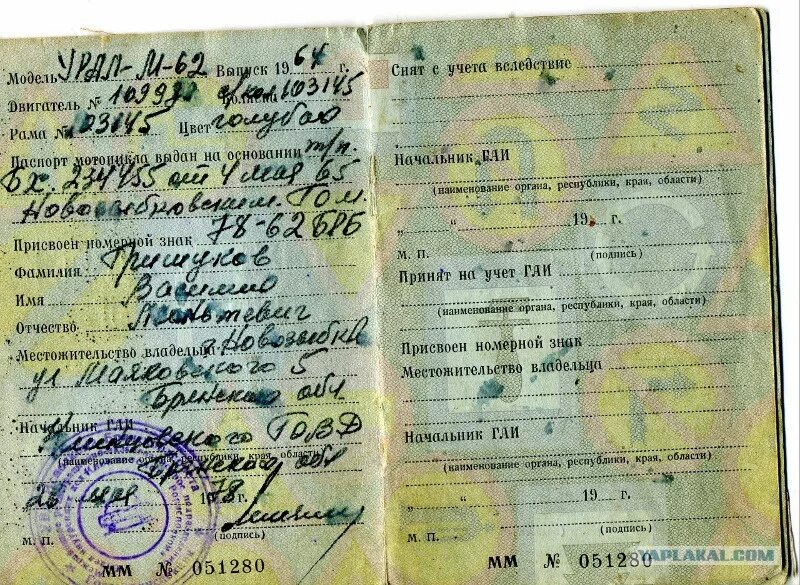 Модель УРАЛ-М-62 Выпуск 1964 г.
Двигатель № 109980 Коляска 103145
Рама № 103145 Цвет голубой
Паспорт мотоцикла выдан на основании т/п.
БХ. 234455 от 4 мая 65
Новозыбковским ГОМ.
Присвоен номерной знак 78-62 БРБ
Фамилия Гришуков
Имя Василий
Отчество
Местожительство владельца г. Новозыбков
ул Маяковского 5
Брянской обл
Начальник ГАИ
ГОВД
(наименование органа, республики, края, области)
Брянской обл
26 мая 1978 г.
(подпись)
М. П.
ММ № 051280
Снят с учета вследствие
Начальник ГАИ
(наименование органа, республики, края, области)
„ “ 19 г.
М. П. (подпись)
Принят на учет ГАИ
(наименование органа, республики, края, области)
Присвоен номерной знак
Местожительство владельца
Начальник ГАИ
(наименование органа, республики, края, области)
„ “ 19 г.
М. П. (подпись)
ММ № 051280
YAPLAKAL.COM